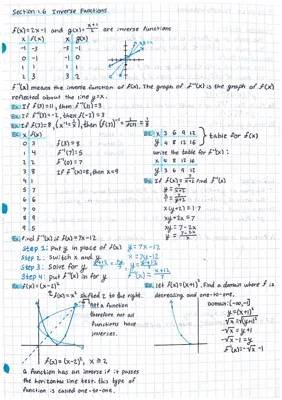 Section 1.6 Inverse Functions
f(x)=2x-1 and g(x)=(x+1)/2 are inverse functions
x f(x) x g(x)
-1 -3 -3 -1
0 -1 -1 0
1 1 1 1
2 3 3 2
f⁻¹(x) means the inverse function of f(x). The graph of f⁻¹(x) is the graph of f(x)
reflected about the line y=x.
Ex: If f(3)=11, then f⁻¹(11)=3
Ex: If f⁻¹(3)=-2, then f(-2)=3
x f(x)
0 3
1 4
2 7
3 8
4 1
5 7
6 6
7 0
8 9
9 5
f(3)=8
f⁻¹(7)=5
f⁻¹(0)=7
If f⁻¹(x)=8, then x=9
Ex: x 3 6 9 12
y 4 8 12 16
table for f(x)
Write the table for f⁻¹(x):
x 4 8 12 16
y 3 6 9 12
x(y+2)=7
xy+2x=7
xy=7-2x
y=(7-2x)/x
Ex: Find f⁻¹(x) if f(x)=7x-12
Step 1: Put y in place of f(x) y=7x-12
Step 2: Switch x and y x=7y-12
Step 3: Solve for y
Step 4: Put f⁻¹(x) in for y f⁻¹(x)=(x+12)/7
Ex: f(x)=(x-2)²
f(x)=x² shifted 2 to the right
Not a function
therefore not all
functions have
inverses.
f(x)=(x-2)², x≥2
A function has an inverse if it passes
the horizontal line test. This type of
function is called one-to-one.
Ex: Let f(x)=(x+1)². Find a domain where f is
decreasing and one-to-one.
Domain: (-∞,-1]
y=(x+1)²
-√x=y+1
-√x-1=y
f⁻¹(x)=-√x-1